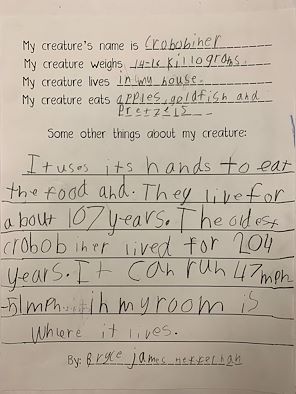 My creature's name is Crobobiner
My creature weighs 14-16 killograms.
My creature lives in my house.
My creature eats apples, goldfish and
Pretzels
Some other things about my creature:
It uses its hands to eat
the food and. They live for
about 107 years. The oldest
crobobiner lived for 204
years. It can run 47 mph
-51 mph. in my room is
Where it lives.
By: Bryce james